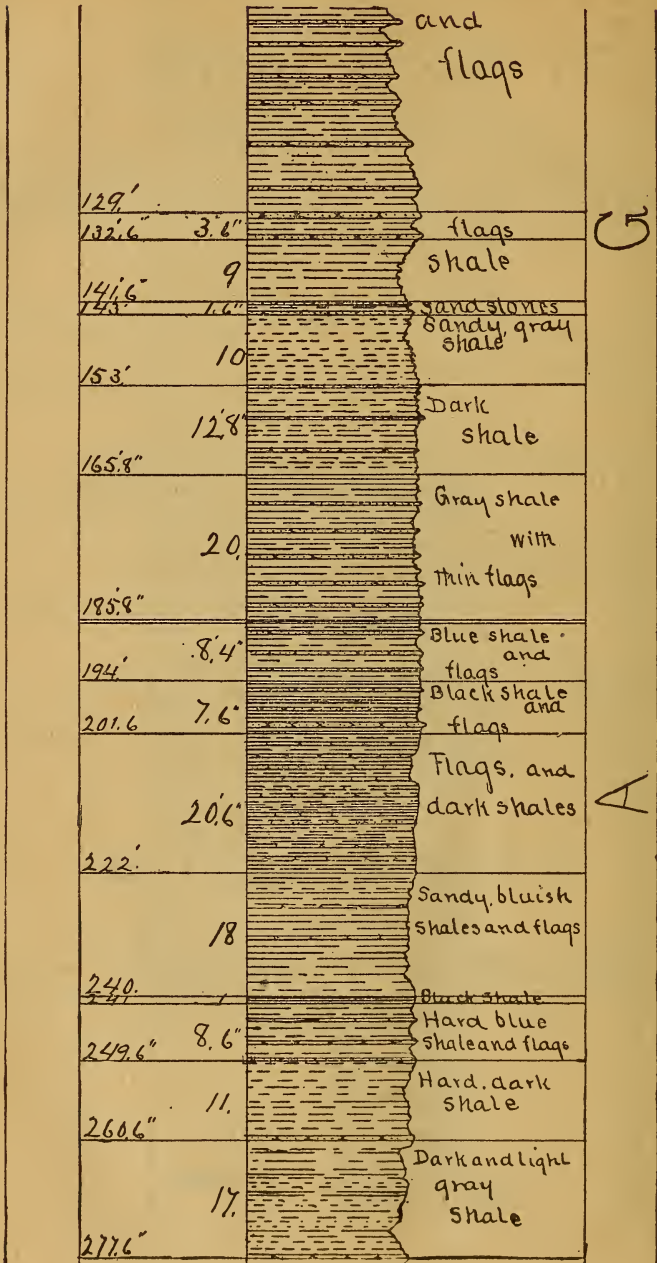 and
flags
129.'
132'.6" 3'.6" flags
9 shale
141'.6"
143' 1'.6" sandstones
10 Sandy, gray
shale
153'.
12'.8" Dark
shale
165'.8"
20. Gray shale
with
thin flags
185'.8"
8'.4" Blue shale
and
flags
194.'
7.'6" Black shale
and
flags
201.6
20'.6" Flags, and
dark shales
222.'
18 Sandy, bluish
shales and flags
240.
241 1 Black shale
8.'6" Hard blue
shale and flags
249.'6"
11. Hard, dark
shale
260'.6"
17. Dark and light
gray
shale
277'.6"
G
A